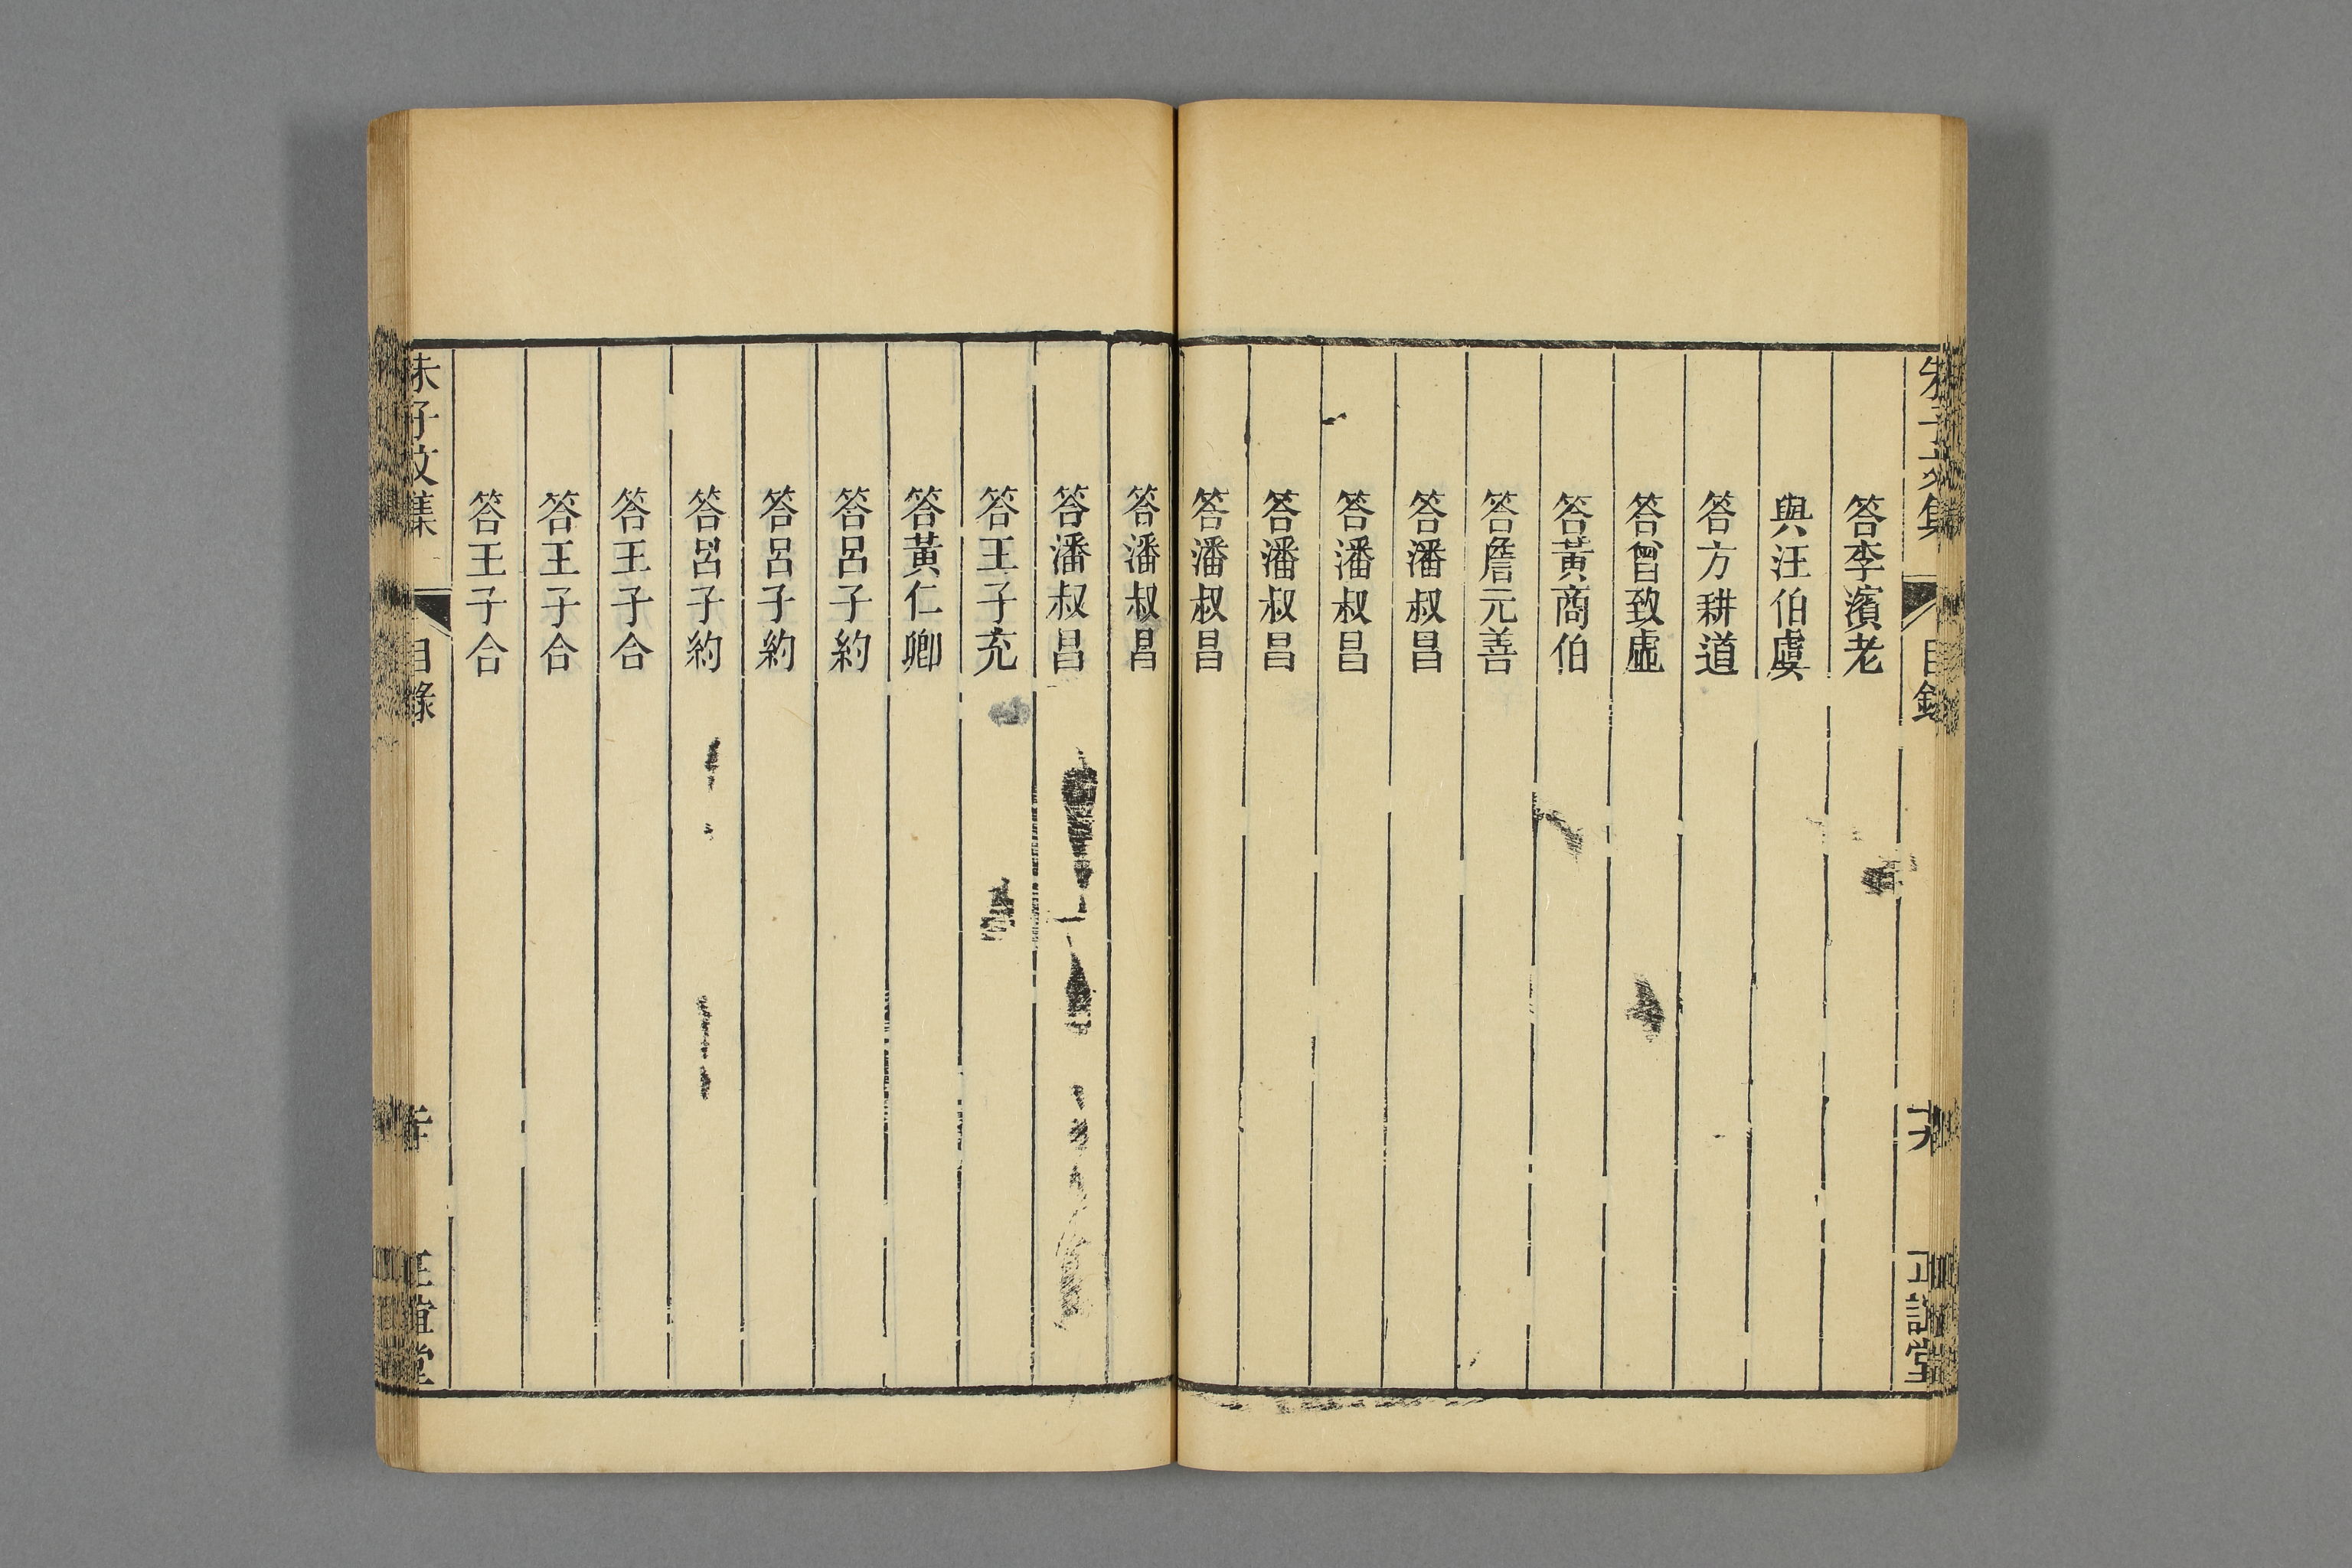 朱子文集
目錄
十九
正誼堂
答李濱老
與汪伯虞
答方耕道
答曾致虛
答黃商伯
答詹元善
答潘叔昌
答潘叔昌
答潘叔昌
答潘叔昌
答潘叔昌
答潘叔昌
答王子充
答黃仁卿
答呂子約
答呂子約
答呂子約
答王子合
答王子合
答王子合
朱子文集
目錄
正誼堂